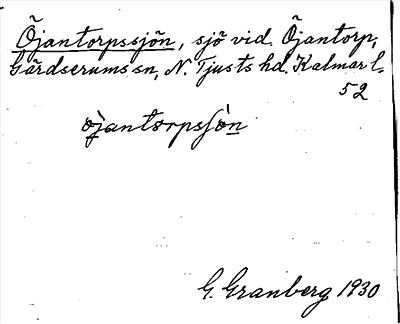 Öjantorpssjön, sjö vid Öjantorp,
Gärdserums sn, N. Tjusts hd. Kalmar l.
52
öjantorpsſòn
G. Granberg 1930